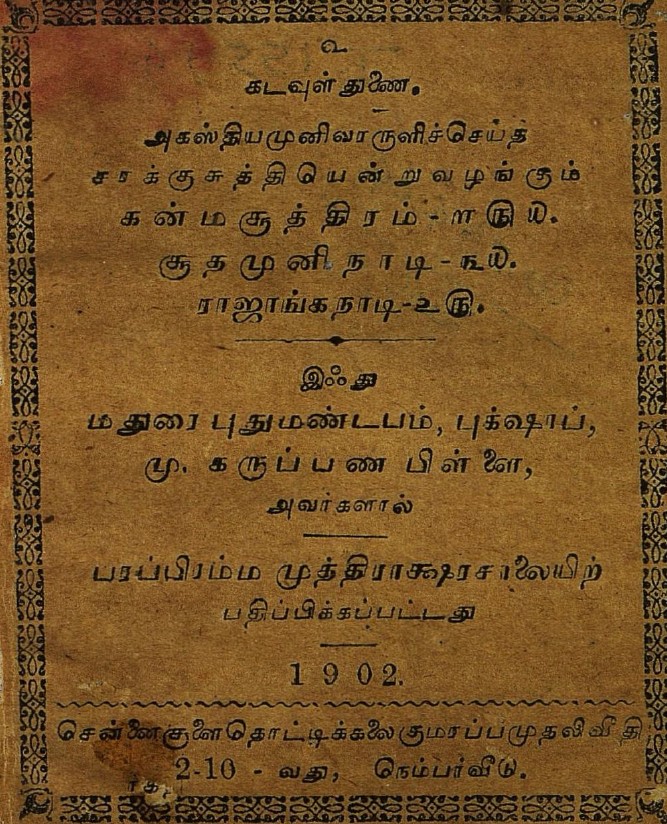 உ
கடவுள் துணை.
அகஸ்தியமுனிவரருளிச்செய்த
சரக்குசுத்தியென்றுவழங்கும்
கன்மசூத்திரம்-௱௫௰.
சூதமுனி நாடி-௩௰.
ராஜாங்கநாடி-௨௫.
இஃது
மதுரை புதுமண்டபம், புக்ஷாப்,
மு. கருப்பண பிள்ளை,
அவர்களால்
பரப்பிரம்ம முத்திராக்ஷரசாலையிற்
பதிப்பிக்கப்பட்டது
1902.
சென்னைசூளைதொட்டிக்கலைகுமரப்பமுதலிவீதி
2-10 - வது, நெம்பர்வீடு.